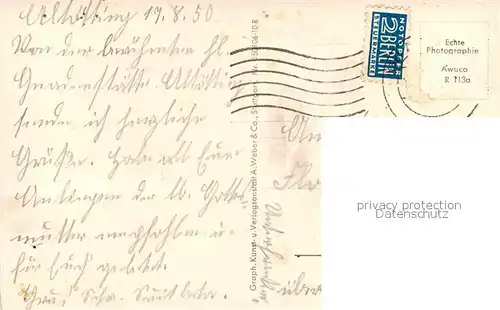 Altötting 17.8.50
Von der berühmten hl.
Gnadenstätte Altötting
sende ich herzliche
Grüße. Habe all Eure
Anliegen der lb. Gottes
mutter empfohlen u.
für Euch gebetet.
Schw.
Graph. Kunst- u. Verlagsanstalt A. Weber & Co., Stuttgart
NOTOPFER
2 BERLIN
STEUERMARKE
Echte
Photographie
Awuco
R 113a
An
über
privacy protection
Datenschutz